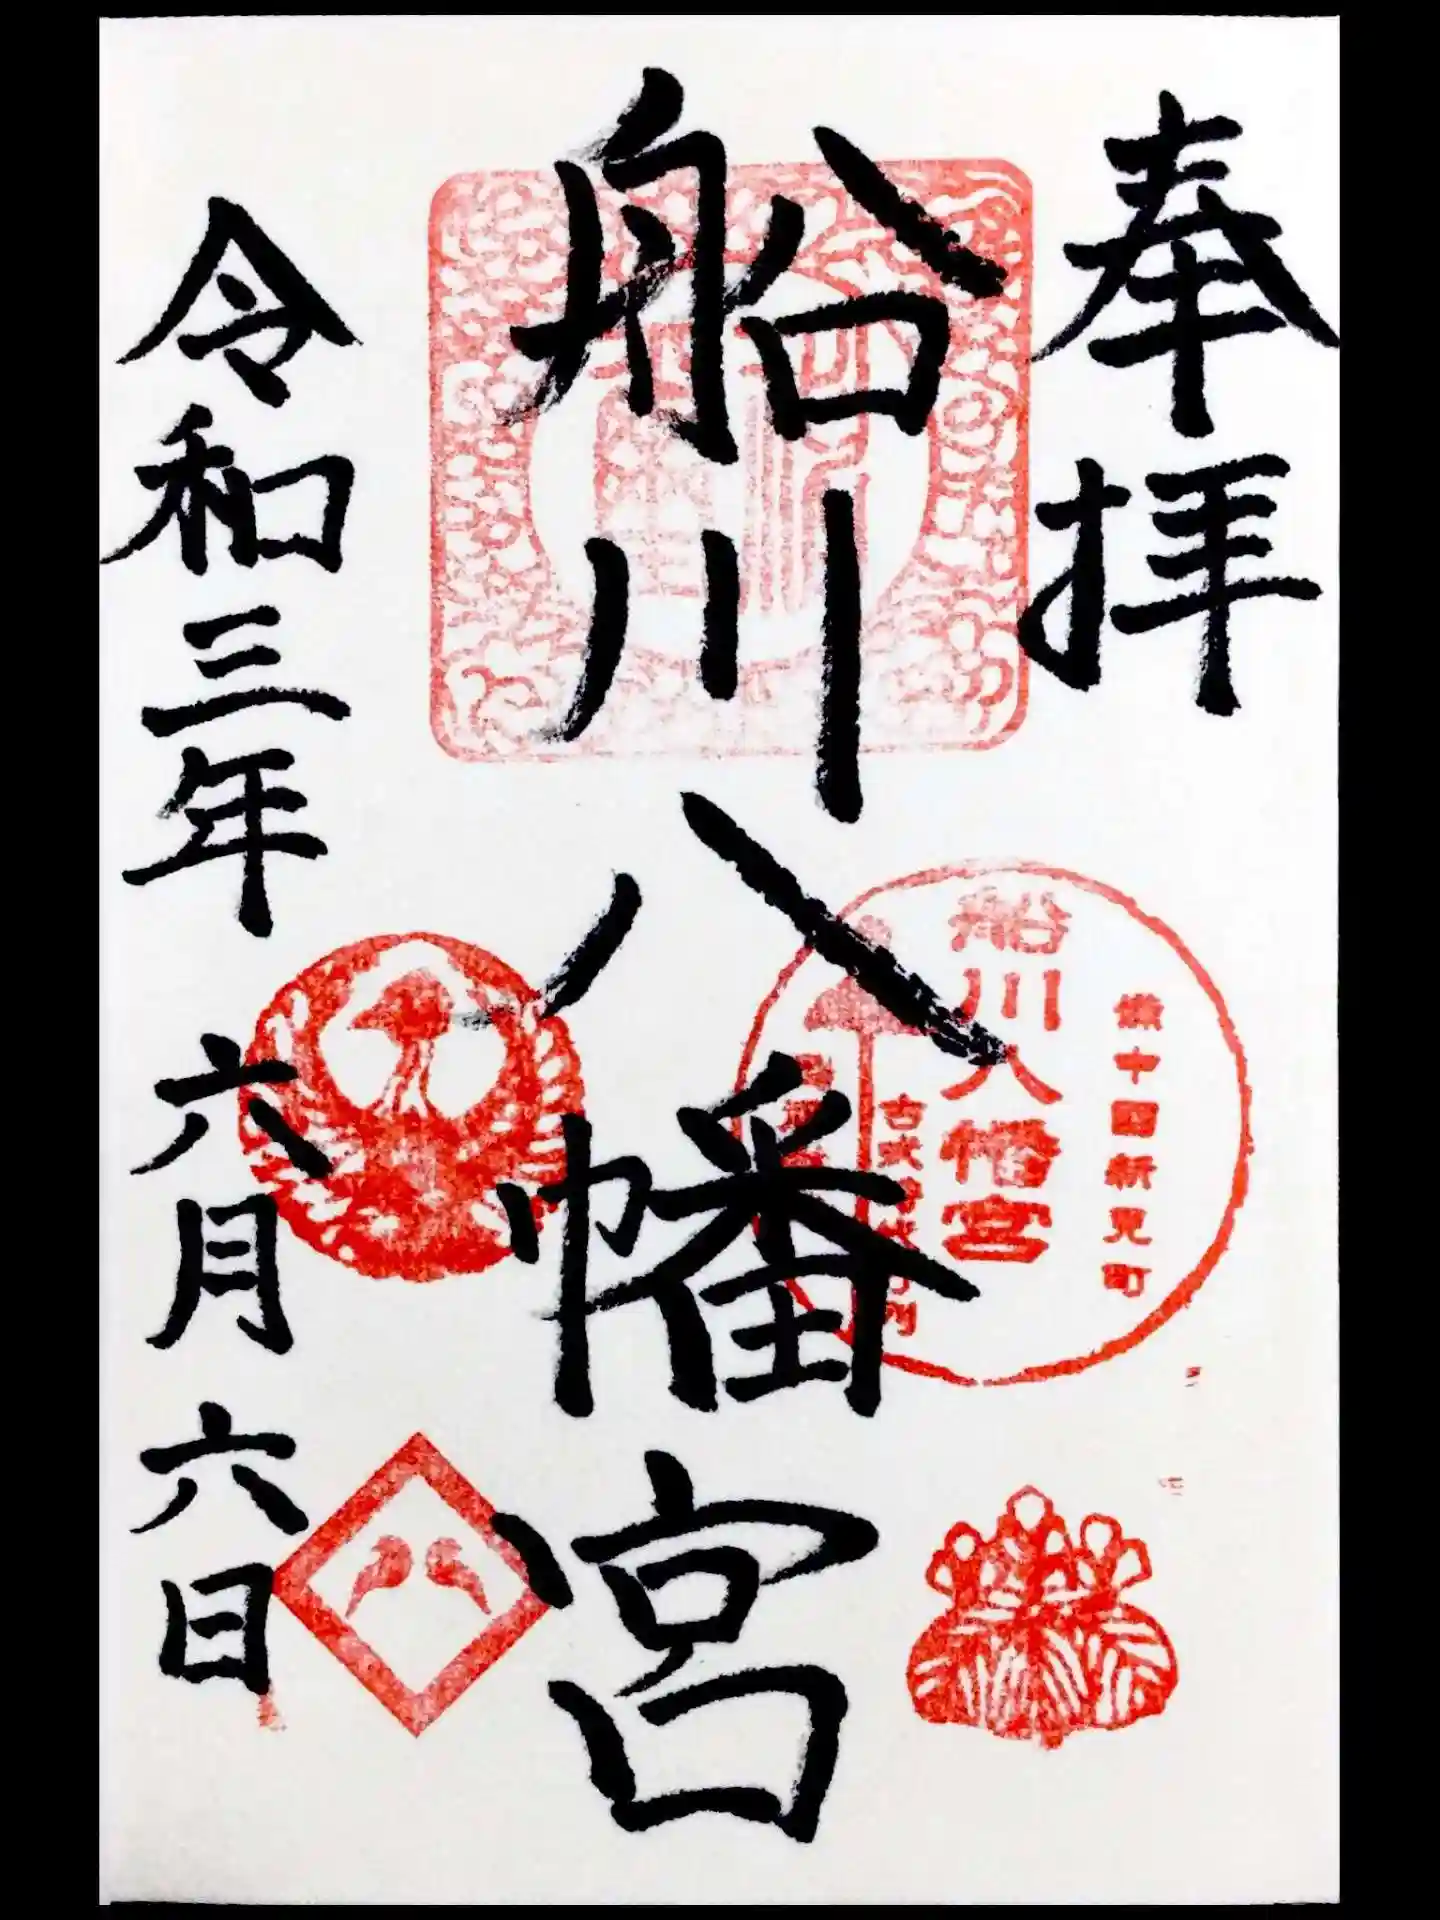 奉拝
船川八幡宮
令和三年
六月六日
備中国新見町
船川八幡宮